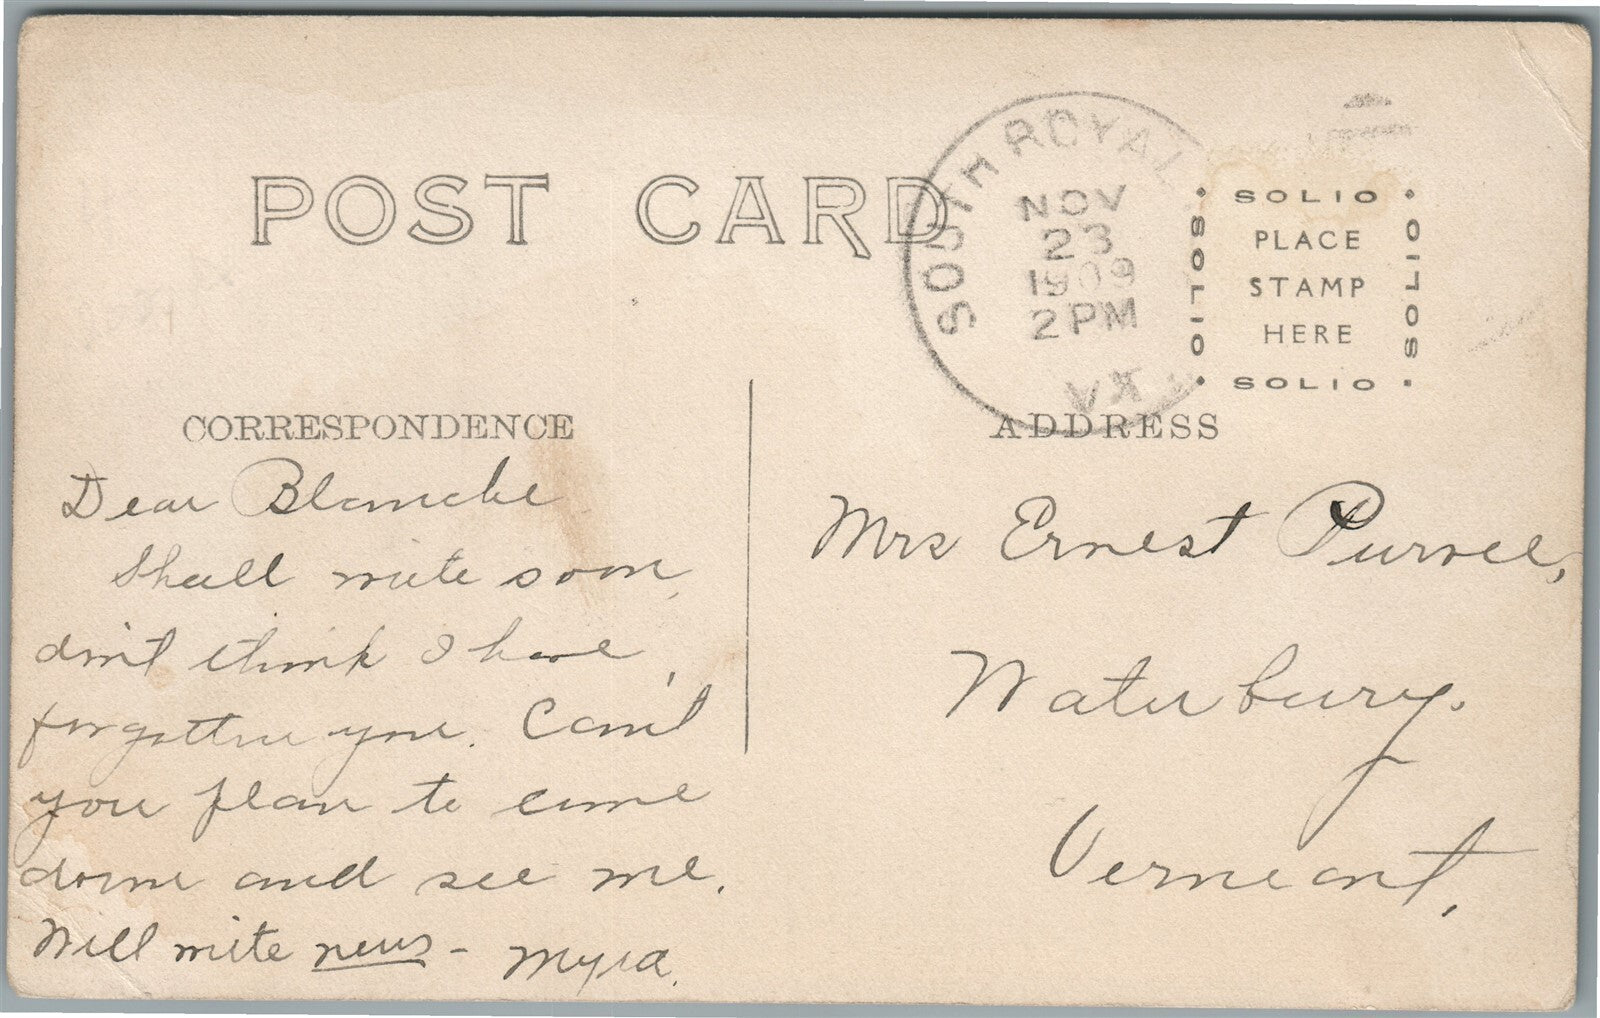 POST CARD
SOUTH ROYAL
NOV
23
1909
2 PM
SOLIO
SOLIO
PLACE
STAMP
HERE
SOLIO
SOLIO
CORRESPONDENCE
Dear Blanche
Shall write soon,
don't think I have
forgotten you. Can't
you plan to come
down and see me.
Will write news - Myra.
ADDRESS
Mrs Ernest
Waterbury.
Vermont.